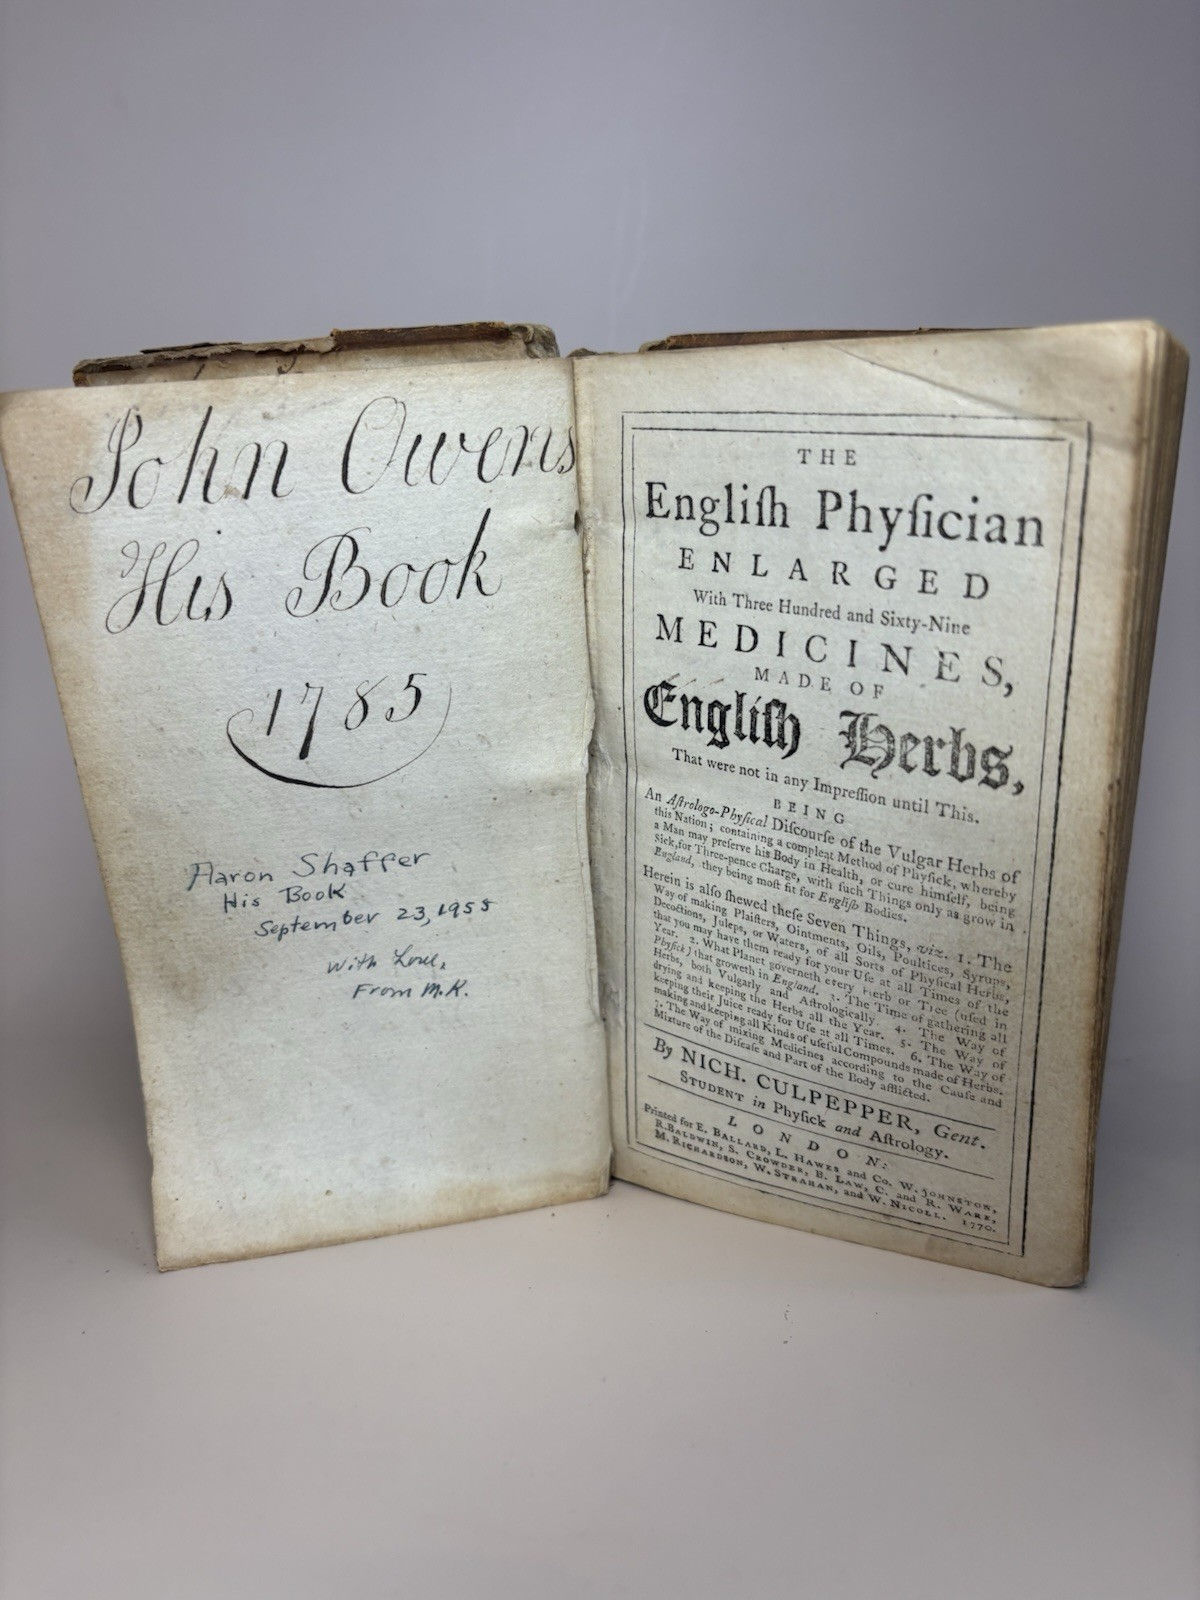 John Owens
His Book
1785
Aaron Shaffer
His Book
September 23, 1955
With Love,
From M.K.
THE
Engliſh Phyſician
ENLARGED
With Three Hundred and Sixty-Nine
MEDICINES,
MADE OF
Engliſh Herbs,
That were not in any Impreſſion until This.
BEING
An Aſtrologo-Phyſical Diſcourſe of the Vulgar Herbs of
this Nation; containing a compleat Method of Phyſick, whereby
a Man may preſerve his Body in Health, or cure himſelf, being
Sick, for Three-pence Charge, with ſuch Things only as grow in
England, they being moſt fit for Engliſh Bodies.
Herein is alſo ſhewed theſe Seven Things, viz. 1. The
Way of making Plaiſters, Ointments, Oils, Poultices, Syrups,
Decoctions, Juleps, or Waters, of all Sorts of Phyſical Herbs,
that you may have them ready for your Uſe at all Times of the
Year. 2. What Planet governeth every Herb or Tree (uſed in
Phyſick) that groweth in England. 3. The Time of gathering all
Herbs, both Vulgarly and Aſtrologically. 4. The Way of
drying and keeping the Herbs all the Year. 5. The Way of
keeping their Juice ready for Uſe at all Times. 6. The Way of
making and keeping all Kinds of uſeful Compounds made of Herbs.
7. The Way of mixing Medicines according to the Cauſe and
Mixture of the Diſeaſe and Part of the Body afflicted.
By NICH. CULPEPPER, Gent.
STUDENT in Phyſick and Aſtrology.
LONDON:
Printed for E. BALLARD, L. HAWES and Co. W. JOHNSTON,
R. BALDWIN, S. CROWDER, B. LAW, C. and R. WARE,
M. RICHARDSON, W. STRAHAN, and W. NICOLL. 1770.